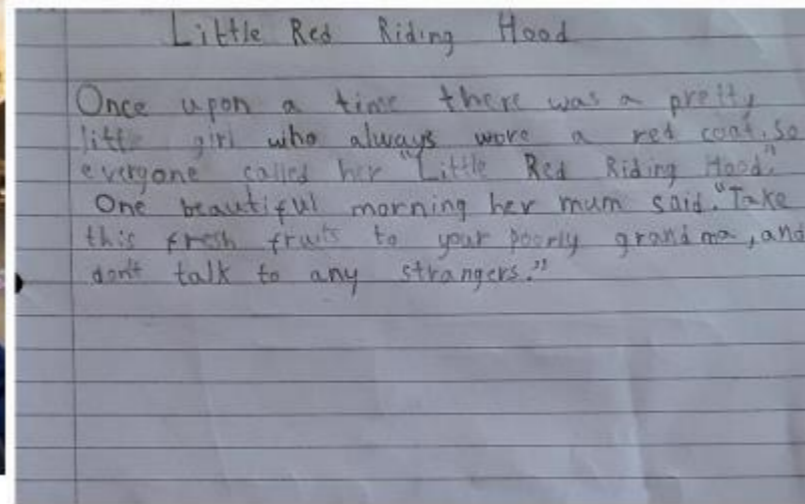 Little Red Riding Hood
Once upon a time there was a pretty
little girl who always wore a red coat. So
everyone called her "Little Red Riding Hood".
One beautiful morning her mum said. "Take
this fresh fruits to your poorly grandma, and
don't talk to any strangers."